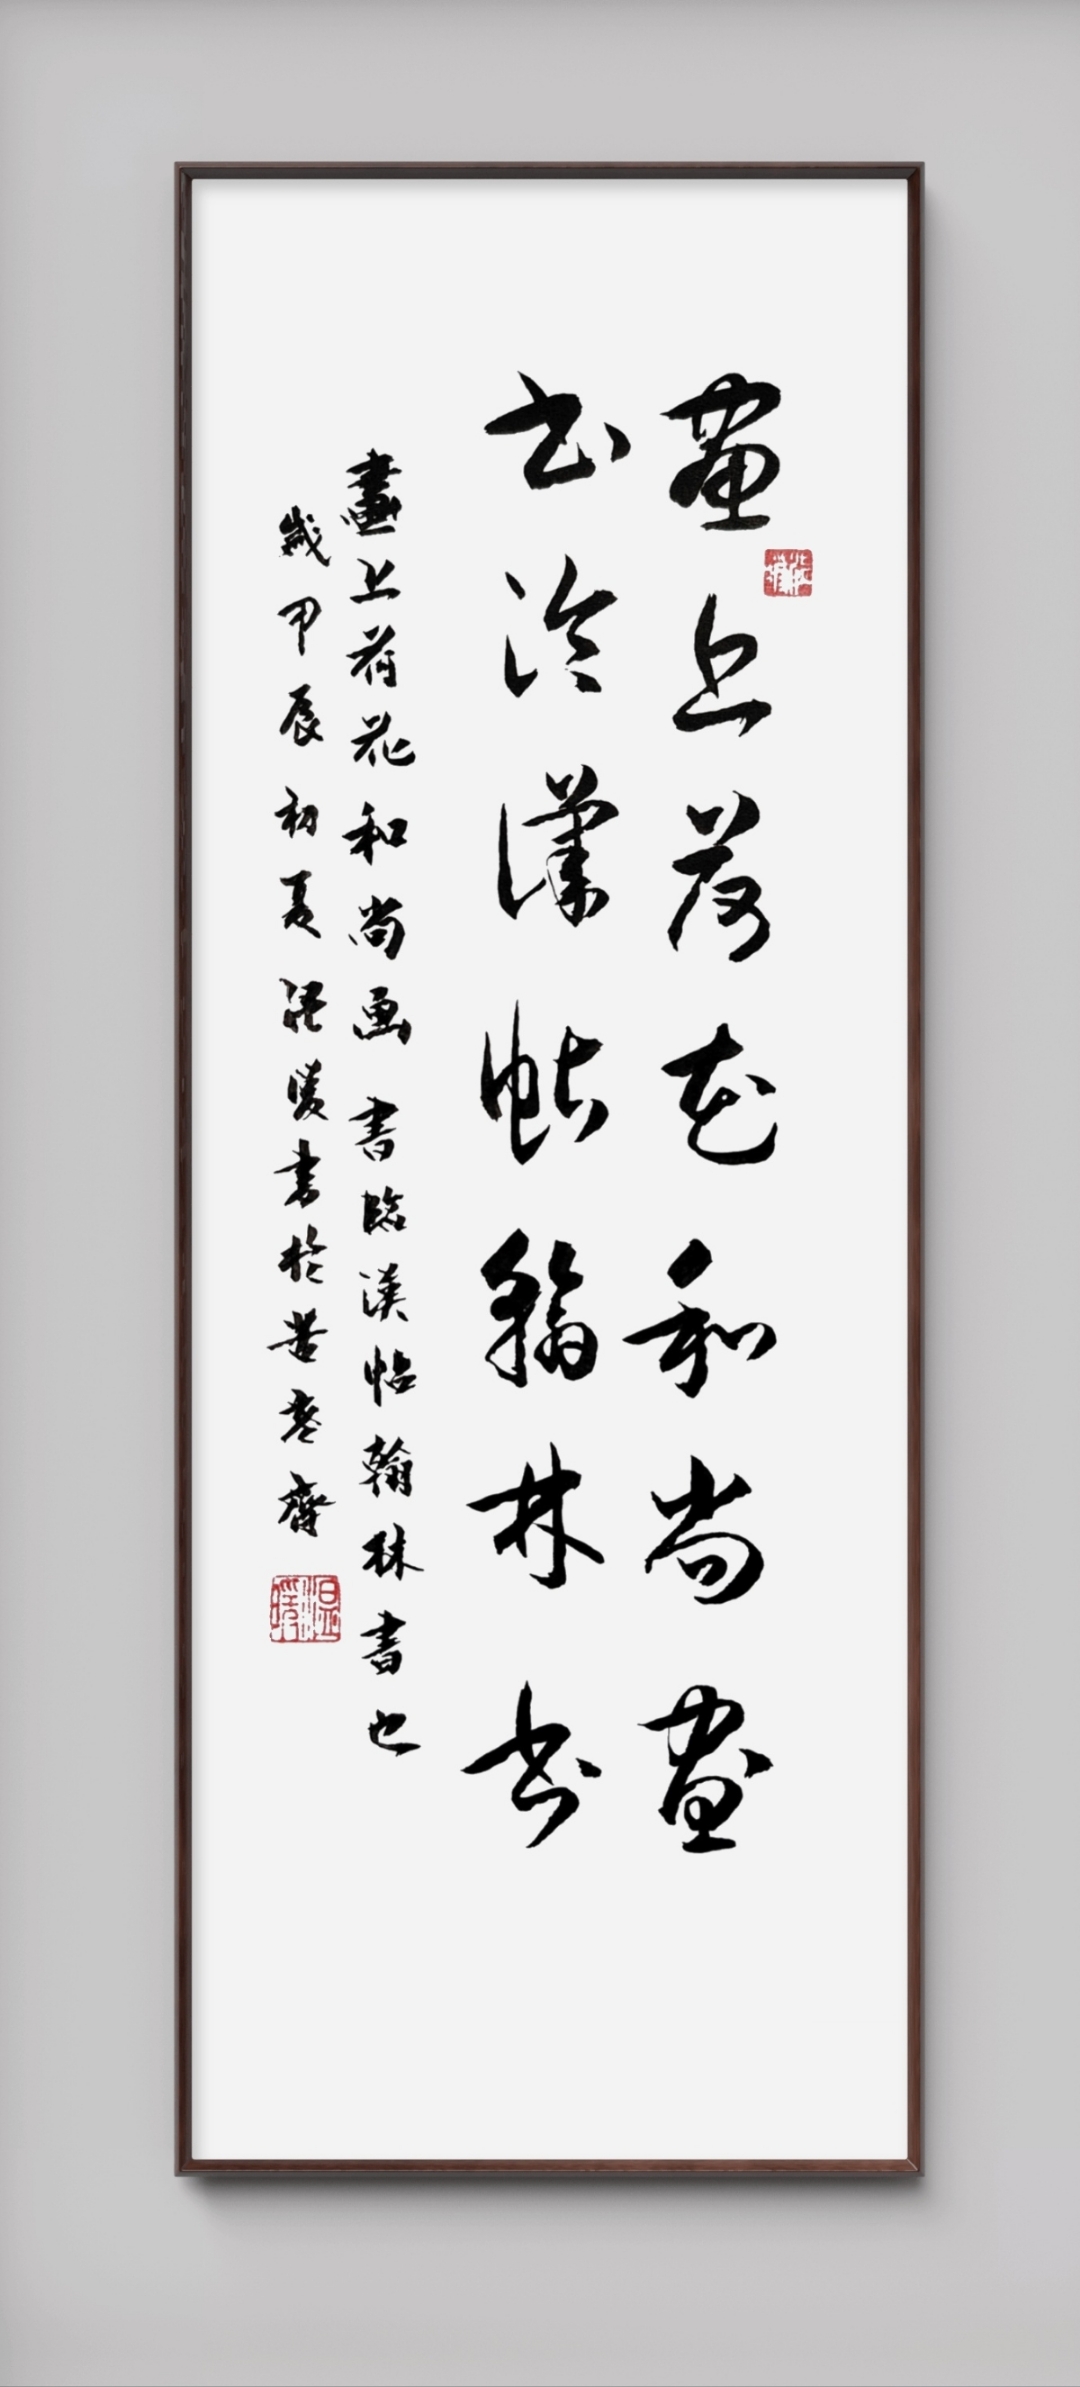 畫上荷花和尚畫
書臨漢帖翰林書
畫上荷花和尚画 書臨漢帖翰林書也
歲甲辰初夏 書於 齋